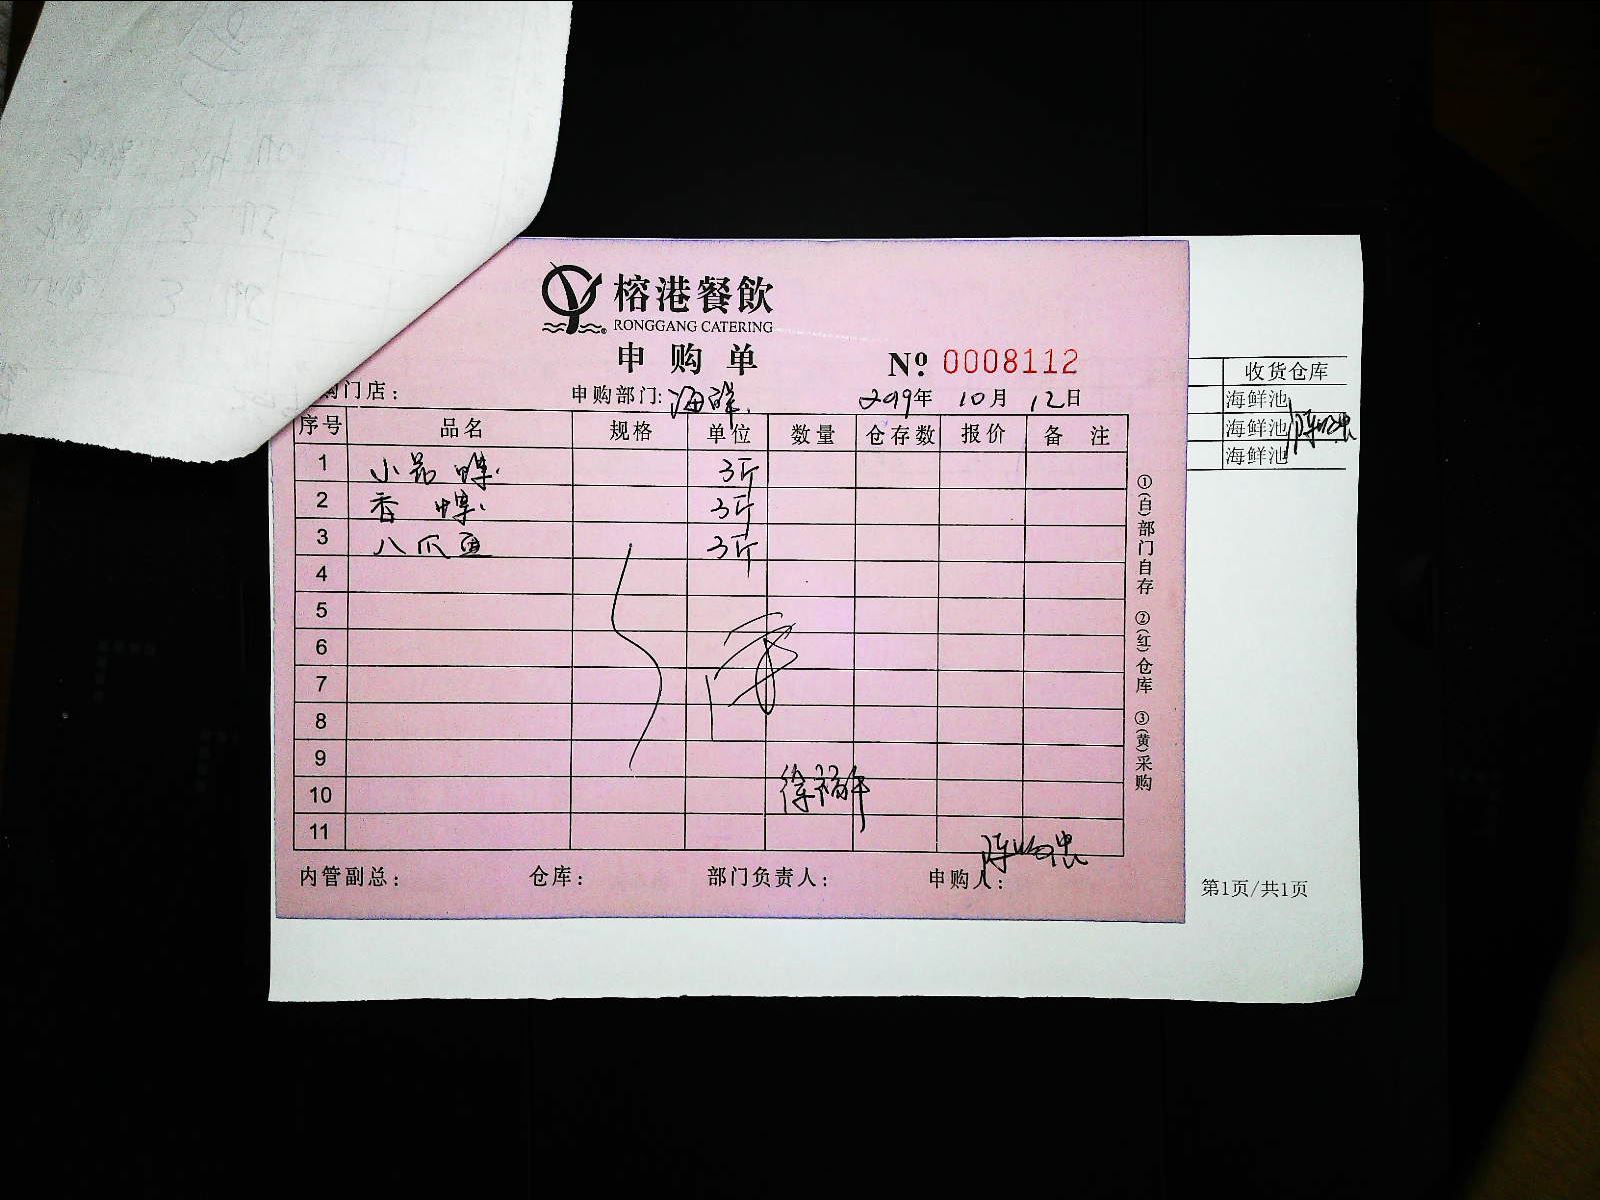 榕港餐飲
RONGGANG CATERING
申购单
№ 0008112
购门店： 申购部门: 海鲜 2019年 10月 12日
序号 品名 规格 单位 数量 仓存数 报价 备注
1 小 3斤
2 香 3斤
3 八爪鱼 3斤
4
5
6
7
8
9
10
11
内管副总： 仓库： 部门负责人： 申购人：
①(白)部门自存 ②(红)仓库 ③(黄)采购
收货仓库
海鲜池
海鲜池
海鲜池
第1页/共1页